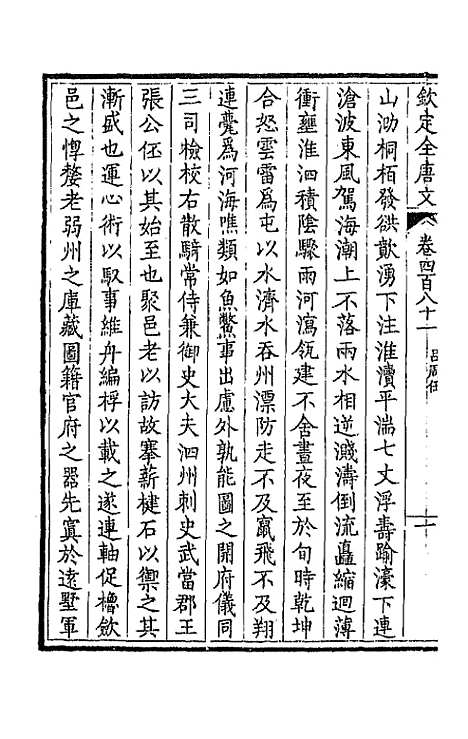 欽定全唐文 卷四百八十一 呂周任 一
山泐桐栢發谼歕湧下注淮瀆平湍七丈浮壽踰濠下連
滄波東風駕海潮上不落兩水相逆濺濤倒流矗縮迴薄
衝壅淮泗積陰驟雨河瀉瓴建不舍晝夜至於旬時乾坤
合怒雲雷為屯以水濟水吞州漂防走不及竄飛不及翔
連甍為河海噍類如魚鱉事出慮外孰能圖之開府儀同
三司檢校右散騎常侍兼御史大夫泗州刺史武當郡王
張公伾以其始至也聚邑老以訪故搴薪楗石以禦之其
漸盛也運心術以馭事維舟編桴以載之遂連軸促櫓斂
邑之惸嫠老弱州之庫藏圖籍官府之器先寘於遠墅軍